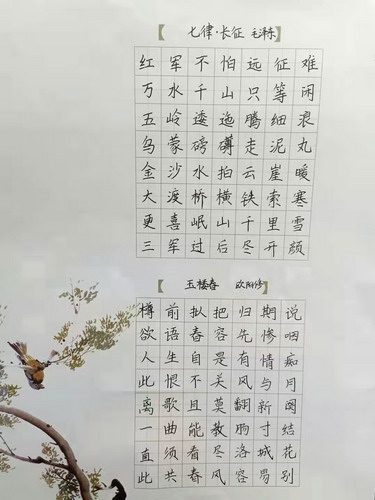 【 七律·长征 毛泽东 】
红军不怕远征难
万水千山只等闲
五岭逶迤腾细浪
乌蒙磅礴走泥丸
金沙水拍云崖暖
大渡桥横铁索寒
更喜岷山千里雪
三军过后尽开颜
【 玉楼春 欧阳修 】
樽前拟把归期说
欲语春容先惨咽
人生自是有情痴
此恨不关风与月
离歌且莫翻新阕
一曲能教肠寸结
直须看尽洛城花
此共春风容易别